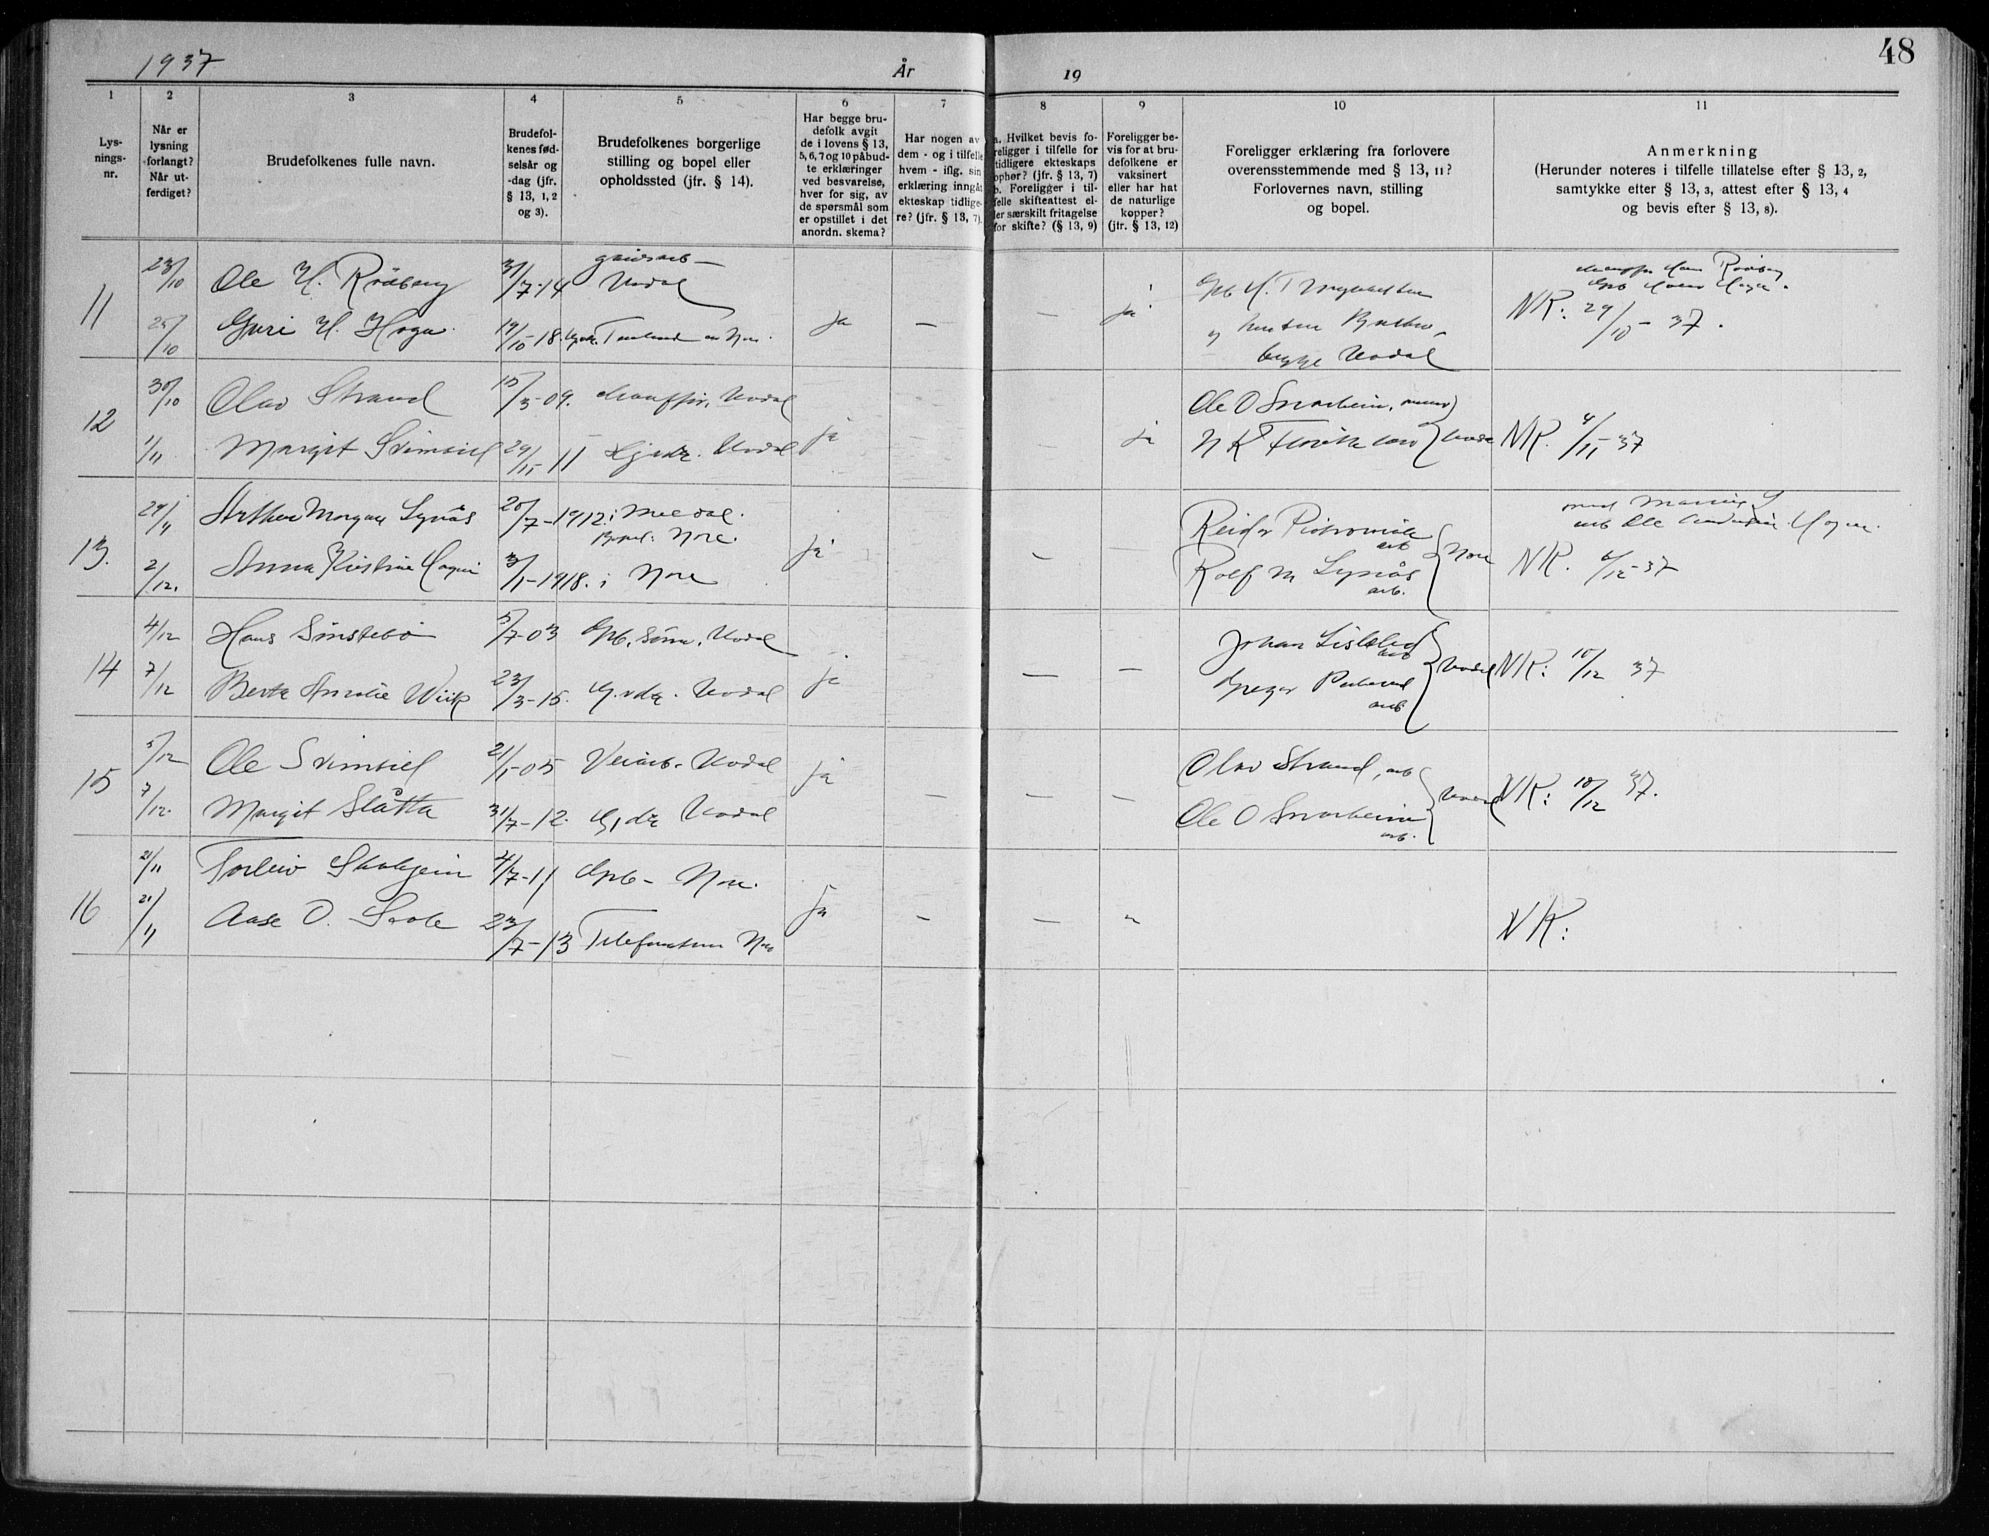 1937
År
19
48
1
2
3
4
5
6
7
8
9
10
11
Lys-
nings-
nr.
Når er
lysning
forlangt?
Når ut-
ferdiget?
Brudefolkenes fulle navn.
Brudefol-
kenes fød-
selsår og
-dag (jfr.
§ 13, 1, 2
og 3).
Brudefolkenes borgerlige
stilling og bopel eller
opholdssted (jfr. § 14).
Har begge bru-
defolk avgit
de i lovens § 13,
5, 6, 7 og 10 påbud-
te erklæringer
ved besvarelse,
hver for sig, av
de spørsmål som
er opstillet i det
anordn. skema?
Har nogen av
dem - og i tilfelle
hvem - iflg. sin
erklæring inngåt
ekteskap tidlige-
re? (jfr. § 13, 7).
a. Hvilket bevis fo-
religger i tilfelle for
tidligere ekteskaps
ophør? (jfr. § 13, 7)
b. Foreligger i til-
felle skifteattest el-
ler særskilt fritagelse
for skifte? (§ 13, 9)
Foreligger be-
vis for at bru-
defolkene er
vaksinert
eller har hat
de naturlige
kopper?
(jfr. § 13, 12)
Foreligger erklæring fra forlovere
overensstemmende med § 13, 11?
Forlovernes navn, stilling
og bopel.
Anmerkning
(Herunder noteres i tilfelle tillatelse efter § 13, 2,
samtykke efter § 13, 3, attest efter § 13, 4
og bevis efter § 13, 8).
11
23/10 Ole H. Rødberg 31/7-14 gårdsarb- Uvdal
25/10 Guri H. Hoga 19/10-18 Nore. ja — — ja
begge Uvdal
NR: 29/10-37.
12
30/10 Olav Strand 15/3-09. Uvdal
1/11 Margit Svimbil 29/11-11 Gjdr. Uvdal ja — ja
Ole O Snarheim
NR. 4/11-37
13.
29/11 Arthur Morgan Lynås 20/7-1912 i Meldal. Nore.
2/12. Anna Kirstine Hagen 3/1-1918. i Nore ja — —
Reidar
arb
Rolf M Lynås
arb.
Nore
NR. 6/12-37
14
4/12 Hans Sønstebø 5/7-03 Gpb. sønn. Uvdal
7/12 Berta Amalie Wiik 23/3-15. G.vdr. Uvdal ja — —
Johan
arb
arb
Uvdal
NR: 10/12 37
15
5/12 Ole Svimbil 21/1-05 Veiarb. Uvdal
7/12. Margit Slåtta 31/7-12. Gjdr Uvdal ja — — —
Olav Strand, arb
Ole O Snarheim
arb.
Uvdal
NR: 10/12 37.
16
21/11 Torleiv 4/7-11 Gpb - Nore.
21/11 Aase O. 23/7-13 Nore ja — — "
NR: